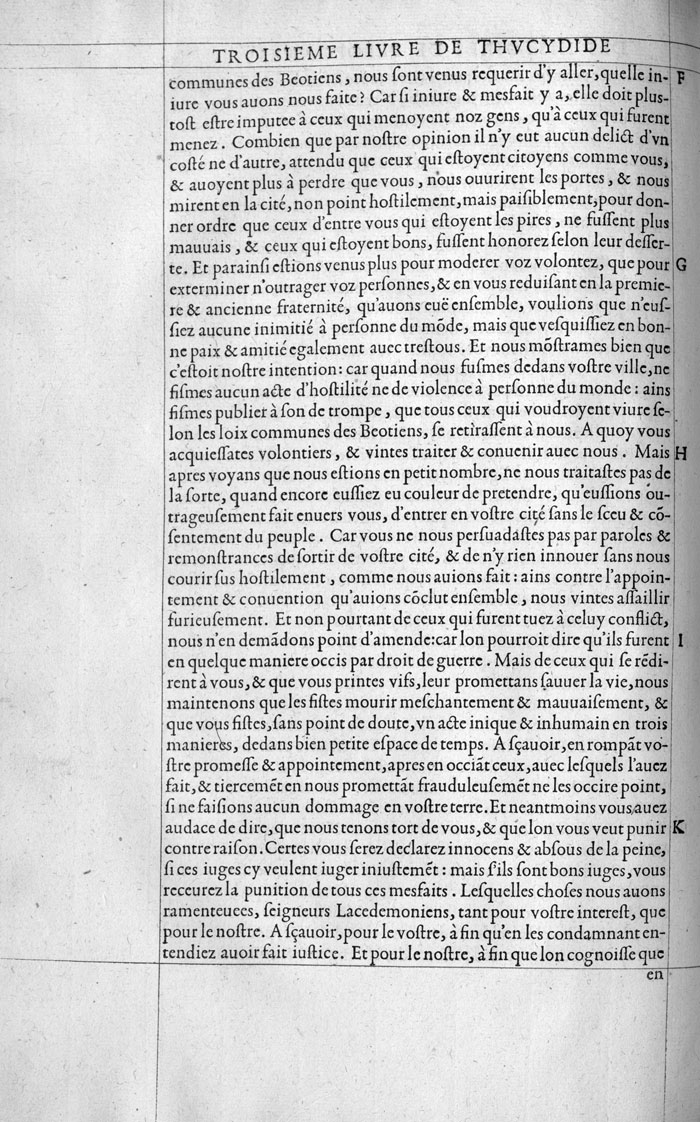 TROISIEME LIVRE DE THVCYDIDE
communes des Beotiens, nous ſont venus requerir d'y aller, quelle in- F
iure vous auons nous faite? Car ſi iniure & mesfait y a, elle doit plus-
toſt eſtre imputee à ceux qui menoyent noz gens, qu'à ceux qui furent
menez. Combien que par noſtre opinion il n'y eut aucun delict d'vn
coſté ne d'autre, attendu que ceux qui eſtoyent citoyens comme vous,
& auoyent plus à perdre que vous, nous ouurirent les portes, & nous
mirent en la cité, non point hoſtilement, mais paiſiblement, pour don-
ner ordre que ceux d'entre vous qui eſtoyent les pires, ne fuſſent plus
mauuais, & ceux qui eſtoyent bons, fuſſent honorez ſelon leur deſſer-
te. Et parainſi eſtions venus plus pour moderer voz volontez, que pour G
exterminer n'outrager voz perſonnes, & en vous reduiſant en la premie-
re & ancienne fraternité, qu'auons euë enſemble, voulions que n'euſ-
ſiez aucune inimitié à perſonne du mõde, mais que veſquiſſiez en bon-
ne paix & amitié egalement auec treſtous. Et nous mõſtrames bien que
c'eſtoit noſtre intention: car quand nous fuſmes dedans voſtre ville, ne
fiſmes aucun acte d'hoſtilité ne de violence à perſonne du monde: ains
fiſmes publier à ſon de trompe, que tous ceux qui voudroyent viure ſe-
lon les loix communes des Beotiens, ſe retiraſſent à nous. A quoy vous
acquieſſates volontiers, & vintes traiter & conuenir auec nous. Mais H
apres voyans que nous eſtions en petit nombre, ne nous traitaſtes pas de
la ſorte, quand encore euſſiez eu couleur de pretendre, qu'euſſions ou-
trageuſement fait enuers vous, d'entrer en voſtre cité ſans le ſceu & cõ-
ſentement du peuple. Car vous ne nous perſuadaſtes pas par paroles &
remonſtrances de ſortir de voſtre cité, & de n'y rien innouer ſans nous
courir ſus hoſtilement, comme nous auions fait: ains contre l'appoin-
tement & conuention qu'auions cõclut enſemble, nous vintes aſſaillir
furieuſement. Et non pourtant de ceux qui furent tuez à celuy conflict,
nous n'en demãdons point d'amende: car lon pourroit dire qu'ils furent I
en quelque maniere occis par droit de guerre. Mais de ceux qui ſe rẽdi-
rent à vous, & que vous printes vifs, leur promettans ſauuer la vie, nous
maintenons que les fiſtes mourir meſchantement & mauuaiſement, &
que vous fiſtes, ſans point de doute, vn acte inique & inhumain en trois
manieres, dedans bien petite eſpace de temps. A ſçauoir, en rompãt vo-
ſtre promeſſe & appointement, apres en occiãt ceux, auec leſquels l'auez
fait, & tiercemẽt en nous promettãt frauduleuſemẽt ne les occire point,
ſi ne faiſions aucun dommage en voſtre terre. Et neantmoins vous auez
audace de dire, que nous tenons tort de vous, & que lon vous veut punir K
contre raiſon. Certes vous ſerez declarez innocens & abſous de la peine,
ſi ces iuges cy veulent iuger iniuſtemẽt: mais ſ'ils ſont bons iuges, vous
receurez la punition de tous ces mesfaits. Leſquelles choſes nous auons
ramenteuces, ſeigneurs Lacedemoniens, tant pour voſtre intereſt, que
pour le noſtre. A ſçauoir, pour le voſtre, à fin qu'en les condamnant en-
tendiez auoir fait iuſtice. Et pour le noſtre, à fin que lon cognoiſſe que
en